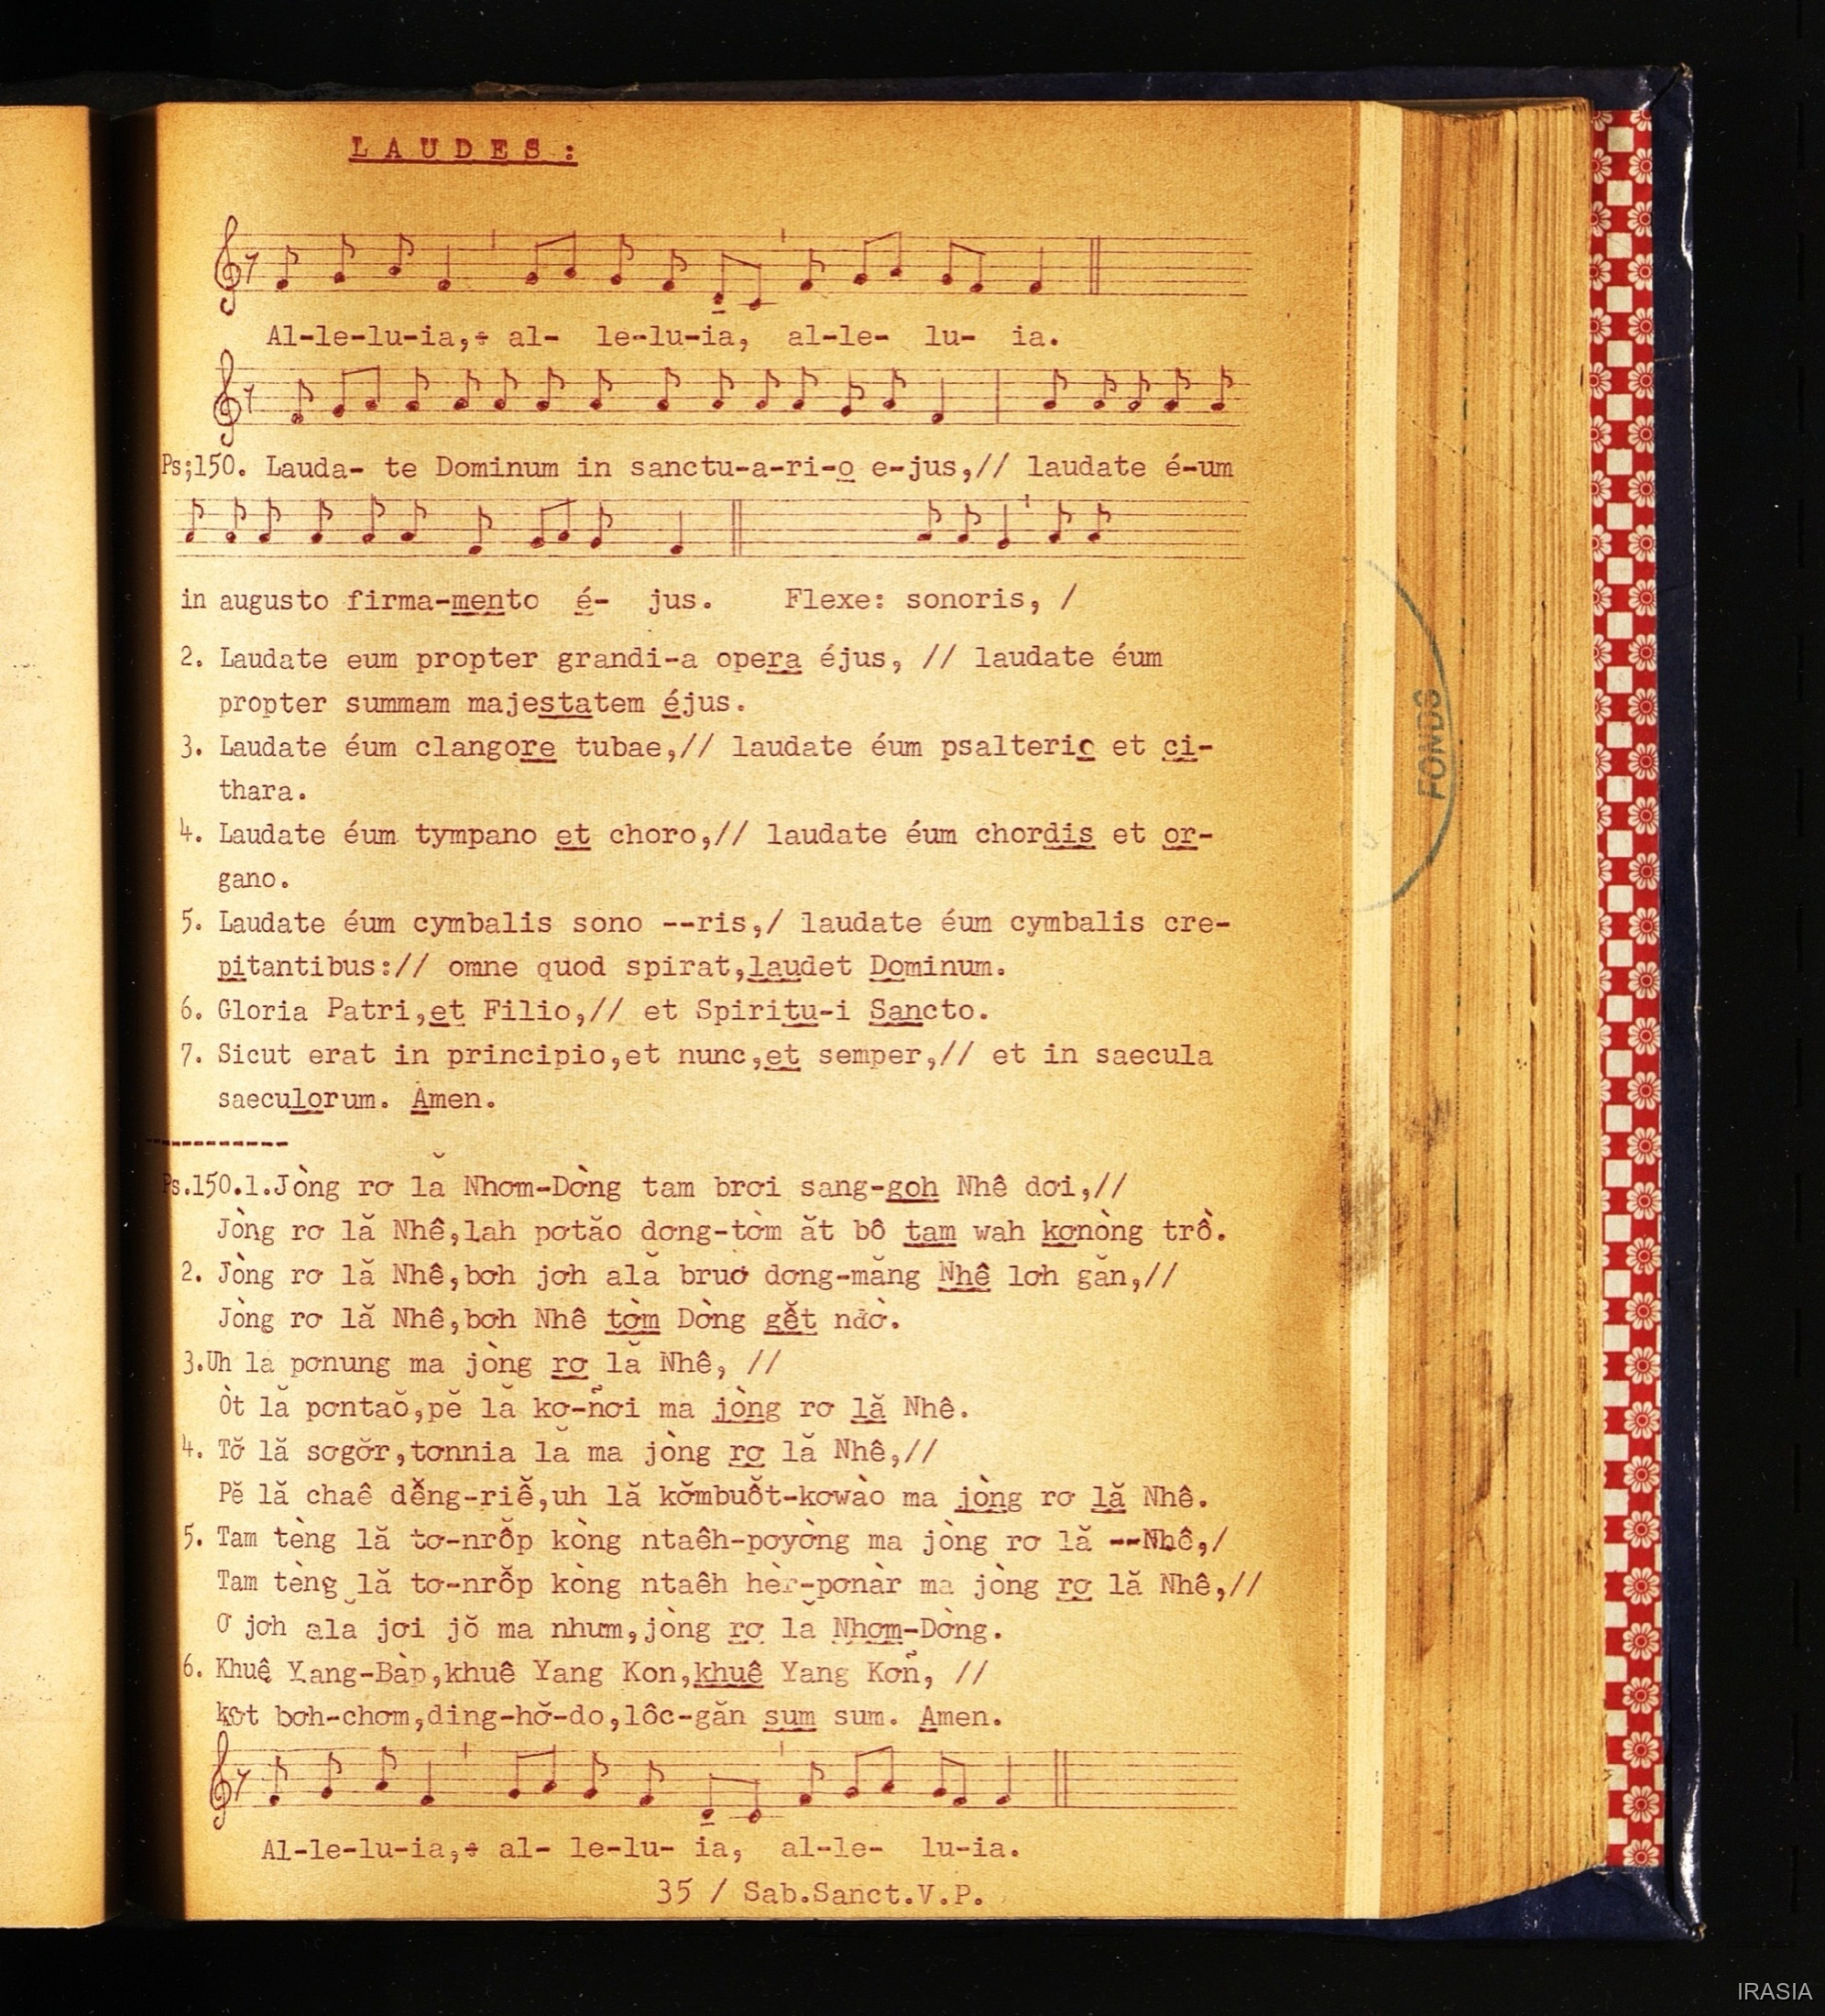 LAUDES:
Al-le-lu-ia,+ al- le-lu-ia, al-le- lu- ia.
Ps;150. Lauda- te Dominum in sanctu-a-ri-o e-jus,// laudate é-um
in augusto firma-mento é- jus. Flexe: sonoris, /
2. Laudate eum propter grandi-a opera éjus, // laudate éum
propter summam majestatem éjus.
3. Laudate éum clangore tubae,// laudate éum psalterio et ci-
thara.
4. Laudate éum tympano et choro,// laudate éum chordis et or-
gano.
5. Laudate éum cymbalis sono --ris,/ laudate éum cymbalis cre-
pitantibus:// omne quod spirat,laudet Dominum.
6. Gloria Patri,et Filio,// et Spiritu-i Sancto.
7. Sicut erat in principio,et nunc,et semper,// et in saecula
saeculorum. Amen.
Ps.150.1.Jòng rơ lă Nhơm-Dờng tam brơi sang-gơh Nhê dơi,//
Jòng rơ lă Nhê,lah pơtăo dơng-tờm ăt bô tam wah kơnòng trồ.
2. Jòng rơ lă Nhê,bơh jơh ală bruơ dơng-măng Nhê lơh găn,//
Jòng rơ lă Nhê,bơh Nhê tờm Dờng gễt ndờ.
3.Uh la pơnung ma jòng rơ lă Nhê, //
Òt lă pơntaŏ,pĕ lă kơ-ñơi ma jòng rơ lă Nhê.
4. Tơ̆ lă sơgơ̆r,tơnnia lă ma jòng rơ lă Nhê,//
Pĕ lă chaê dê̆ng-riê̆,uh lă kơ̆mbuô̆t-kơwào ma jòng rơ lă Nhê.
5. Tam tèng lă tơ-nrô̆p kòng ntaêh-pơyờng ma jòng rơ lă --Nhê,/
Tam tèng lă tơ-nrô̆p kòng ntaêh hèr-pơnàr ma jòng rơ lă Nhê,//
Ơ jơh ală jơi jŏ ma nhum,jòng rơ lă Nhơm-Dờng.
6. Khuê Yang-Bàp,khuê Yang Kon,khuê Yang Kơñ, //
kơt bơh-chơm,ding-hơ̆-do,lôc-găn sum sum. Amen.
Al-le-lu-ia,+ al- le-lu- ia, al-le- lu-ia.
35 / Sab.Sanct.V.P.
FONDS
IRASIA